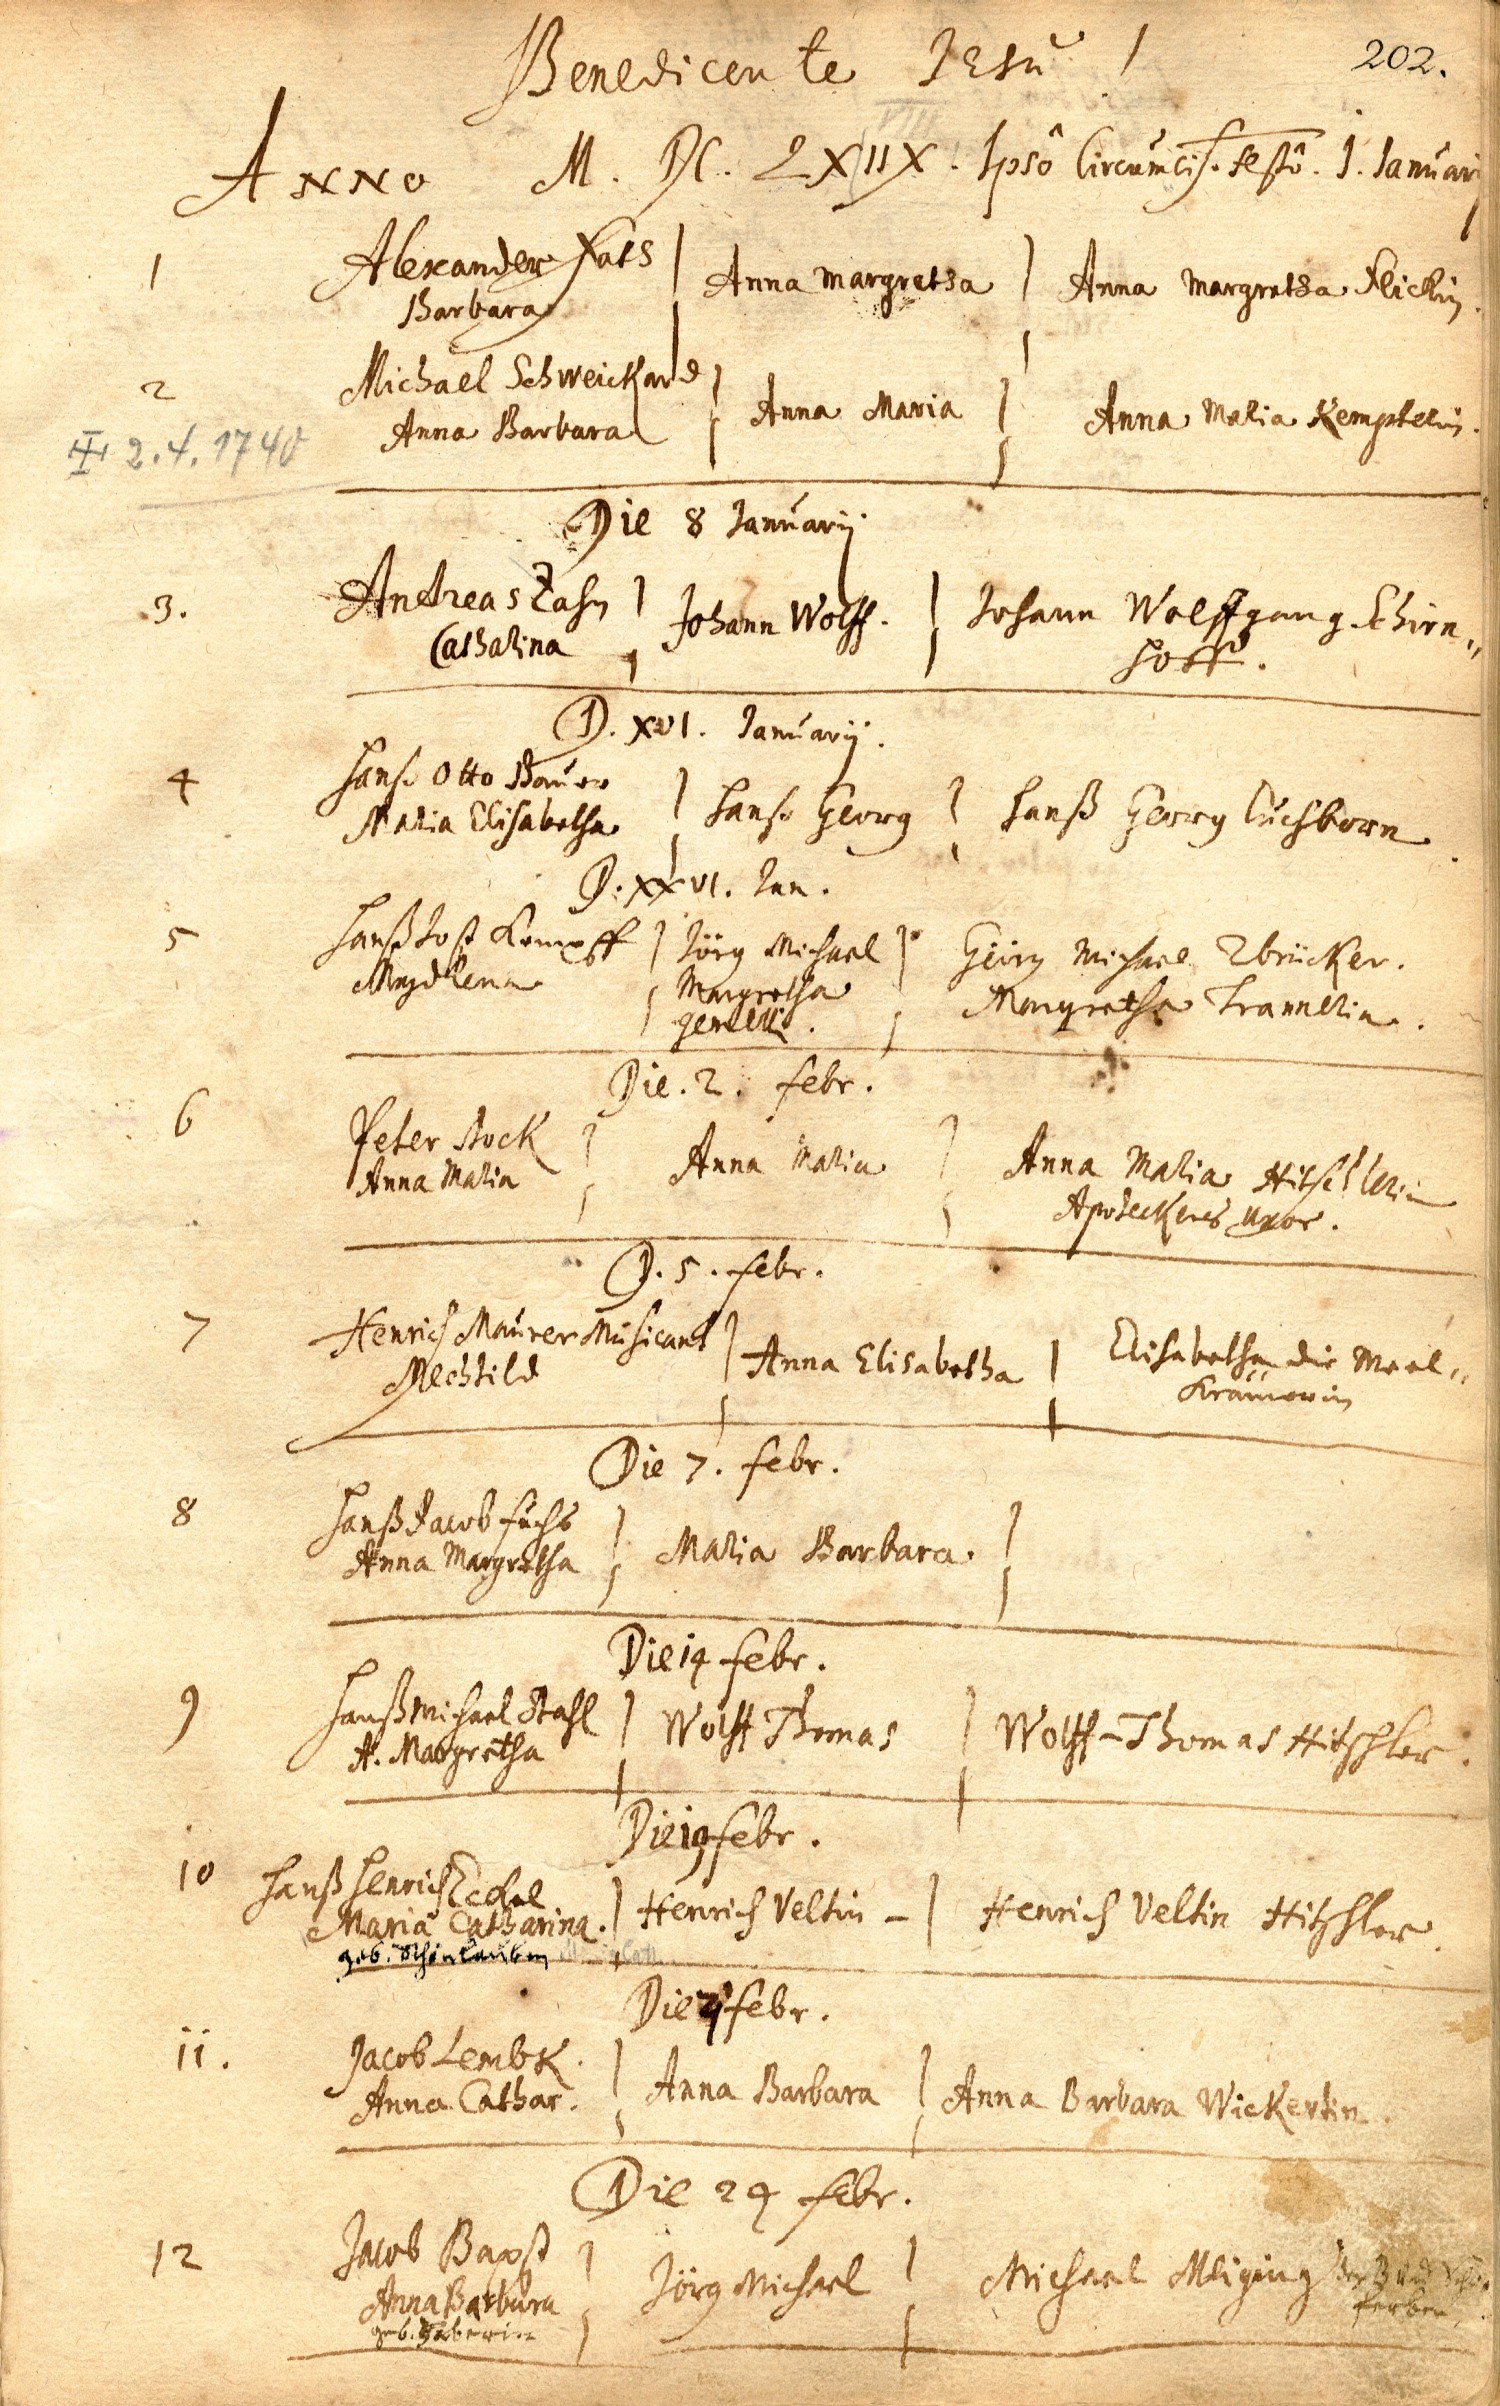 Benedicente JEsu !
202.
ANNO M. DC. LXIIX. Ipsô Circumcis. festô. 1. Januarij
1
Alexander Fats
Barbara
Anna Margretha
Anna Margretha Flickin.
2
Michael Schweickard
Anna Barbara
Anna Maria
Anna Maria Kempterin.
2.4.1740
Die 8 Januarij
3.
Andreas Zahn
Catharina
Johann Wolff.
Johann Wolffgang Ehirn„
hoff.
D. XVI. Januarij.
4
Hanß Otto Bauer
Maria Elisabetha
Hanß Georg
Hanß Georg Cuchborn
D. XXVI. Jan.
5
Hanß Jost Kempff
Magdlena
Jörg Michael
Margretha
gemelli.
Geörg Michael Zbrücker.
Margretha Tramerin.
Die. 2. febr.
6
Peter Stock
Anna Maria
Anna Maria
Anna Maria Hitschlerin
Apoteckers uxor.
D. 5. febr.
7
Henrich Maurer Musicant
Mechtild
Anna Elisabetha
Elisabetha die Meel„
Krämerin
Die 7. febr.
8
Hanß Jacob Fuchs
Anna Margretha
Maria Barbara.
Die 14 febr.
9
Hanß Michael Stahl
A. Margretha
Wolff Thomas
Wolff-Thomas Hitschler.
Die 19 febr.
10
Hanß Henrich Eckel
Maria Catharina.
geb. Schönlauben
Henrich Veltin -
Henrich Veltin Hitschler.
Die febr.
11.
Jacob Lembk.
Anna Cathar.
Anna Barbara
Anna Barbara Wickertin.
Die 24 febr.
12
Jacob Bapst
Anna Barbara
geb. Faberin
Jörg Michael
Michael
ferber